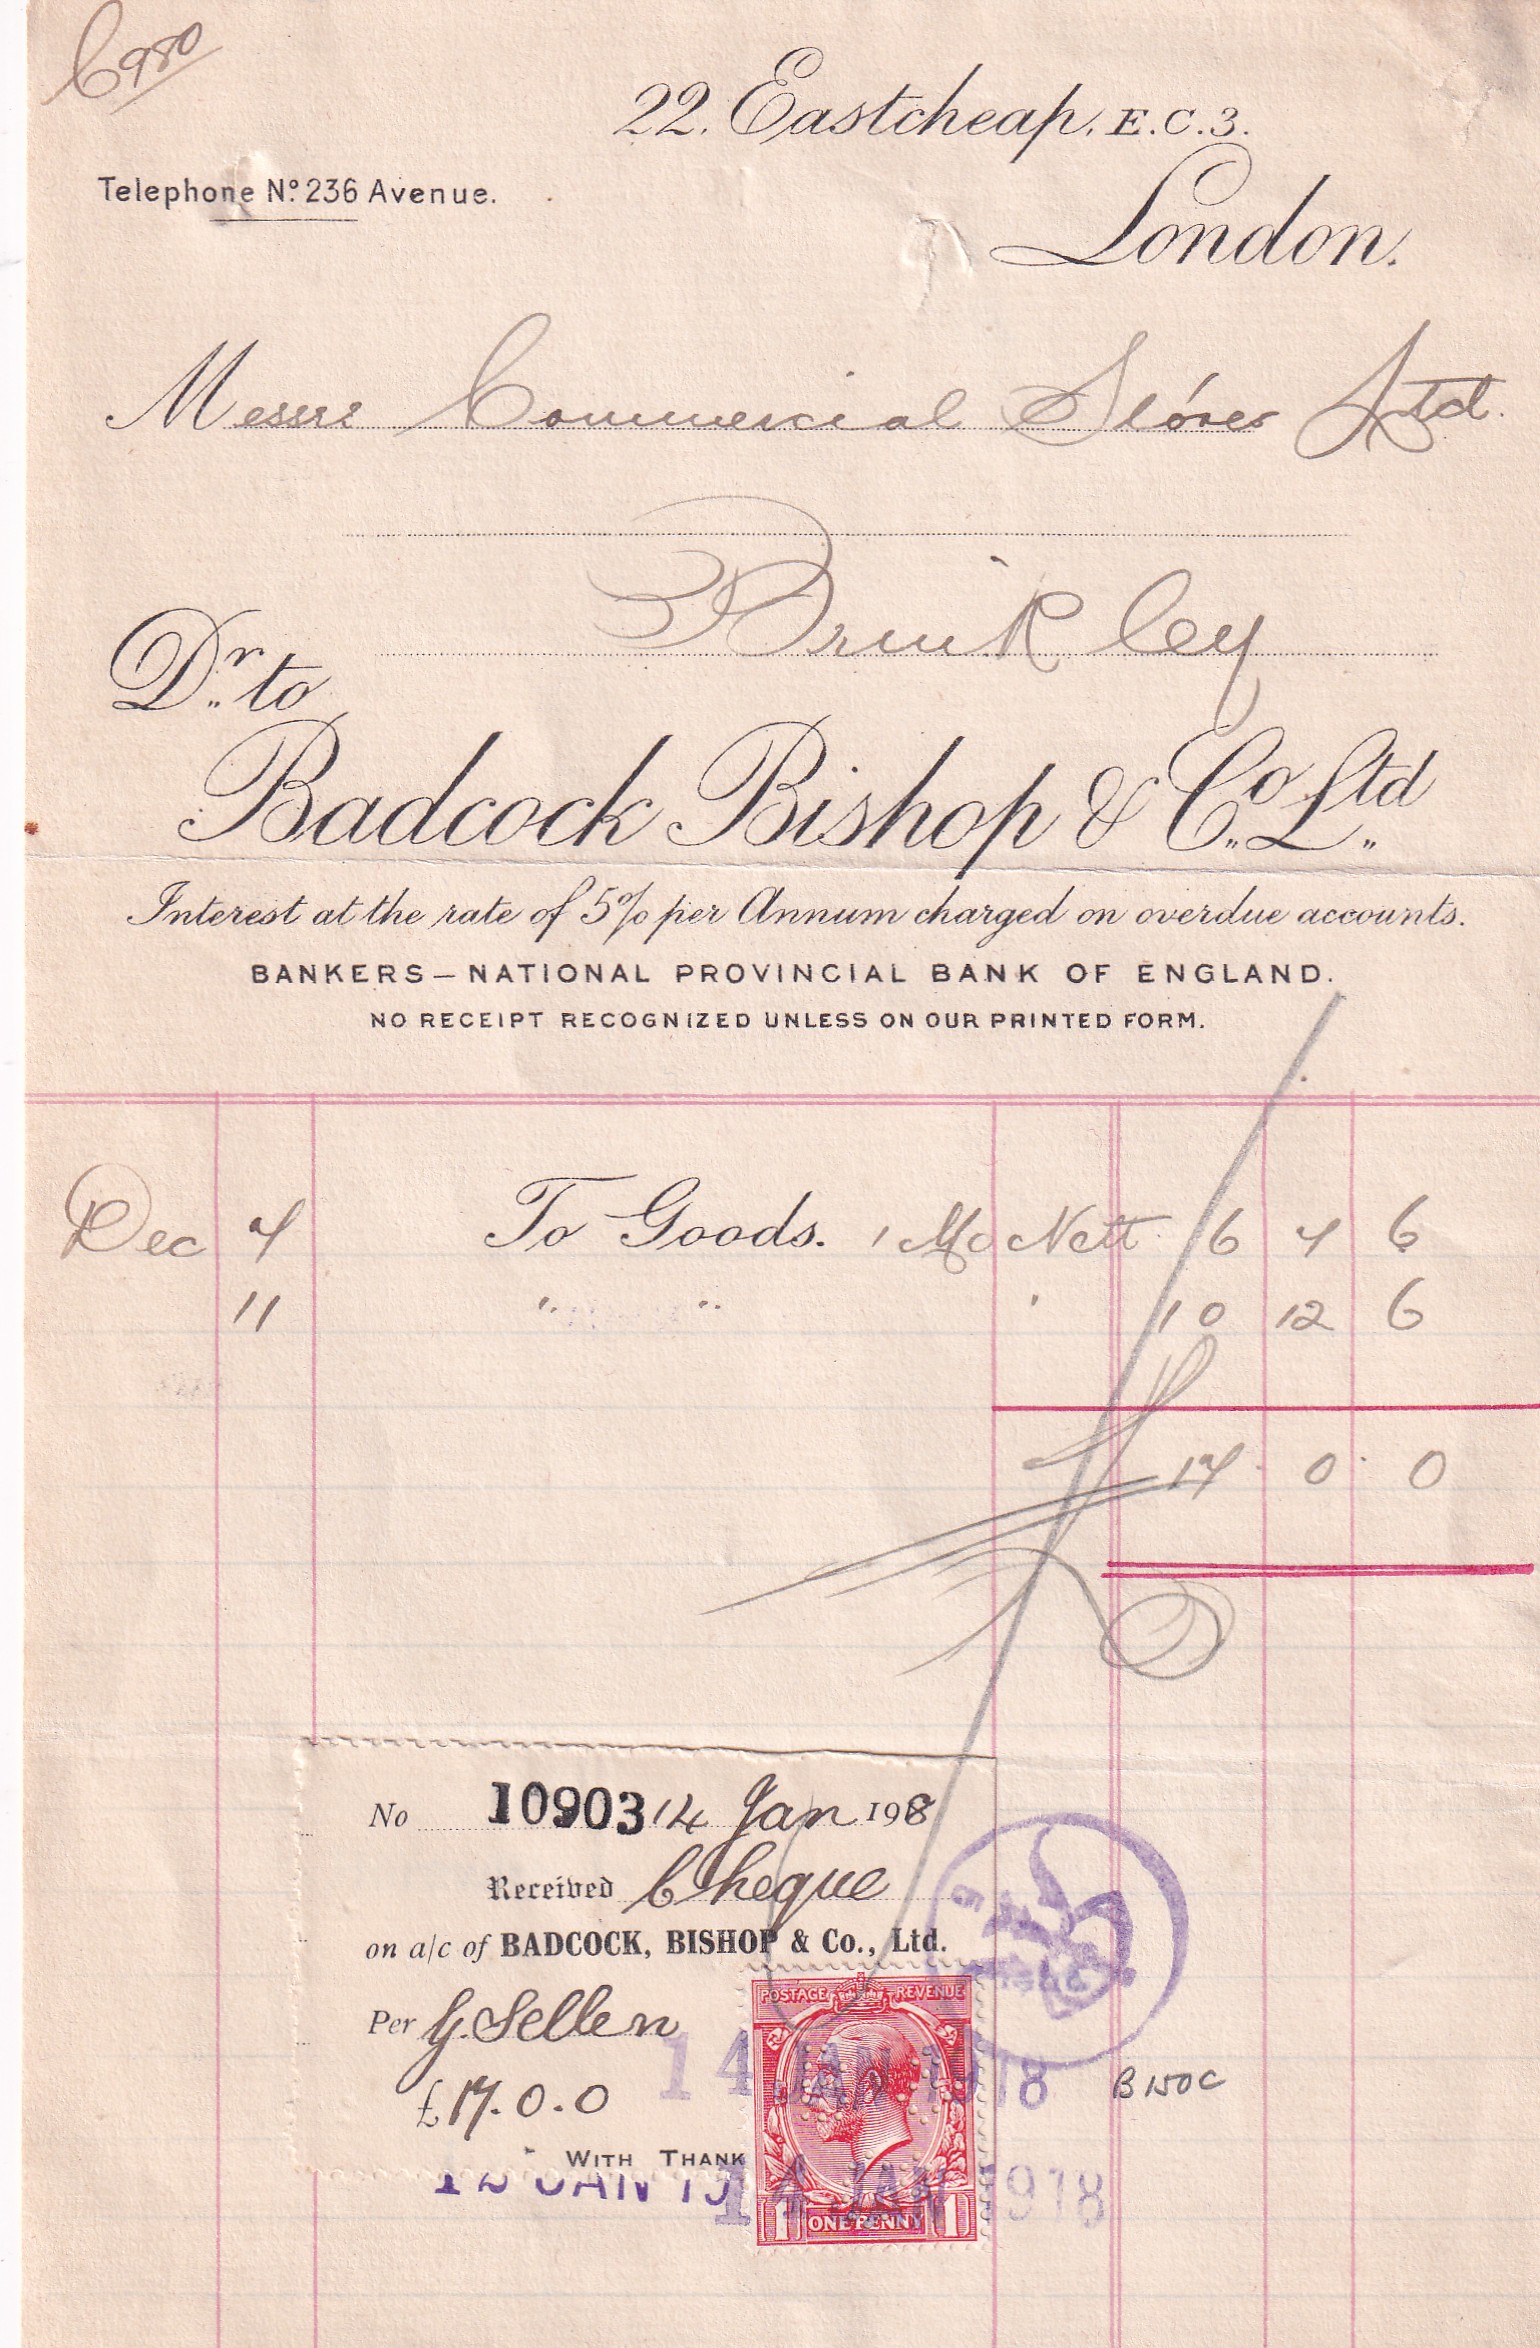 C980
22. Eastcheap. E.C.3.
Telephone No. 236 Avenue.
London.
Messrs Commercial Stores Ltd.
Dr. to
Badcock Bishop & Co. Ltd.
Interest at the rate of 5% per Annum charged on overdue accounts.
BANKERS – NATIONAL PROVINCIAL BANK OF ENGLAND.
NO RECEIPT RECOGNIZED UNLESS ON OUR PRINTED FORM.
Dec 7 To Goods. 1 Mo Nett 6 7 6
11 " " " 10 12 6
17. 0. 0
No 10903 14 Jan 1918
Received Cheque
on a/c of BADCOCK, BISHOP & Co., Ltd.
Per G. Sellen
POSTAGE REVENUE
14 JAN 1918
B150C
£17.0.0
WITH THANK
12 JAN 19
14 JAN 1918
1 ONE PENNY 1